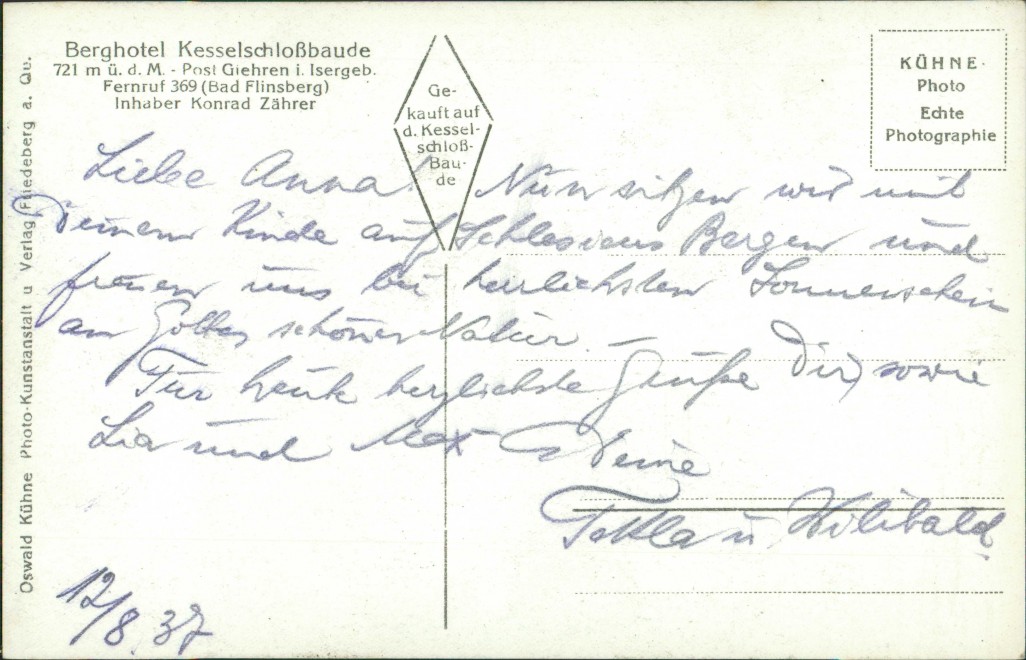 Berghotel Kesselschloßbaude
721 m ü. d. M. - Post Giehren i. Isergeb.
Fernruf 369 (Bad Flinsberg)
Inhaber Konrad Zährer
Ge-
kauft auf
d. Kessel-
schloß-
Bau-
de
KÜHNE-
Photo
Echte
Photographie
Oswald Kühne Photo-Kunstanstalt u Verlag Friedeberg a. Qu.
Liebe Anna! Nun sitzen wir mit
Deinem Kinde auf Schlesiens Bergen und
freuen uns bei herrlichsten Sonnenschein
an Gottes schöner Natur. –
Für heute herzlichste Grüße Dir, sowie
Lia und Max Deine
Tekla u. Wilibald
12/8.37